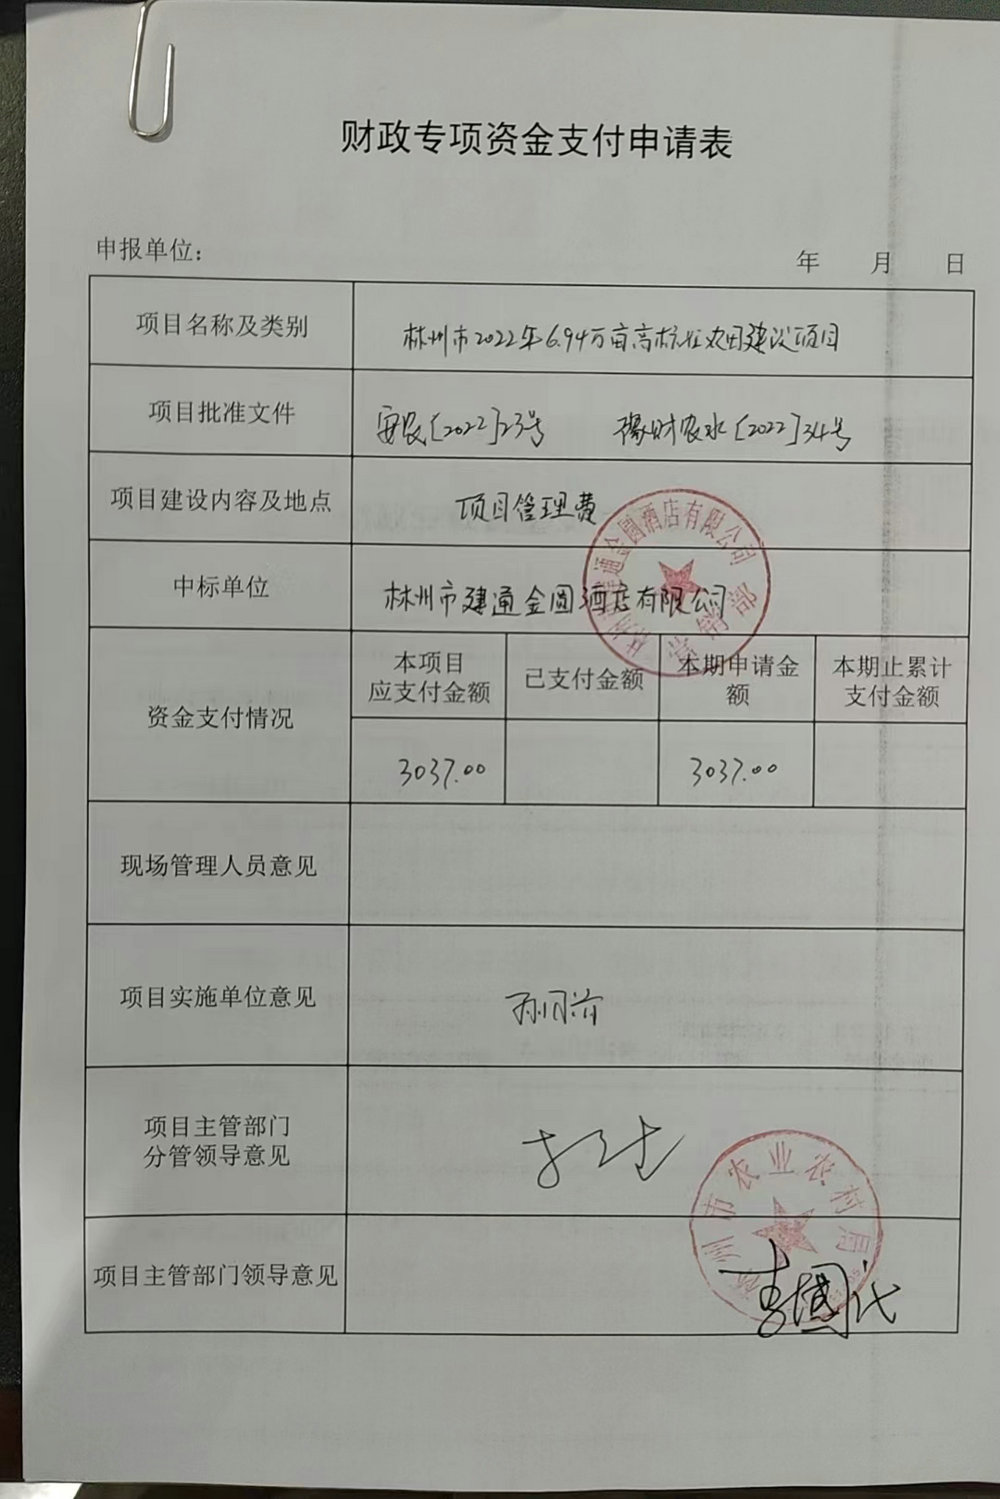 财政专项资金支付申请表
申报单位： 年 月 日
项目名称及类别 林州市2022年6.94万亩高标准农田建设项目
项目批准文件 安农〔2022〕23号 豫财农水〔2022〕34号
项目建设内容及地点 项目管理费
中标单位 林州市建通金圆酒店有限公司
林州市建通金圆酒店有限公司
营销部
资金支付情况
本项目
应支付金额
已支付金额
本期申请金
额
本期止累计
支付金额
3037.00 3037.00
现场管理人员意见
项目实施单位意见
项目主管部门
分管领导意见
林州市农业农村局
项目主管部门领导意见